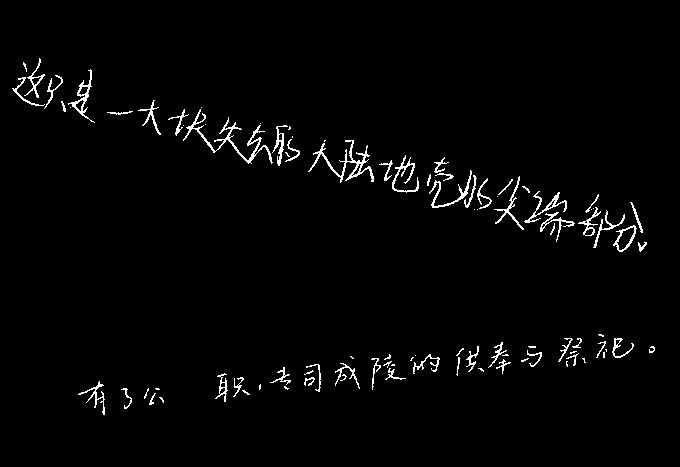 这只是一大块失去的大陆地壳的尖端部分.
有了公 职,专司成陵的供奉与祭祀。